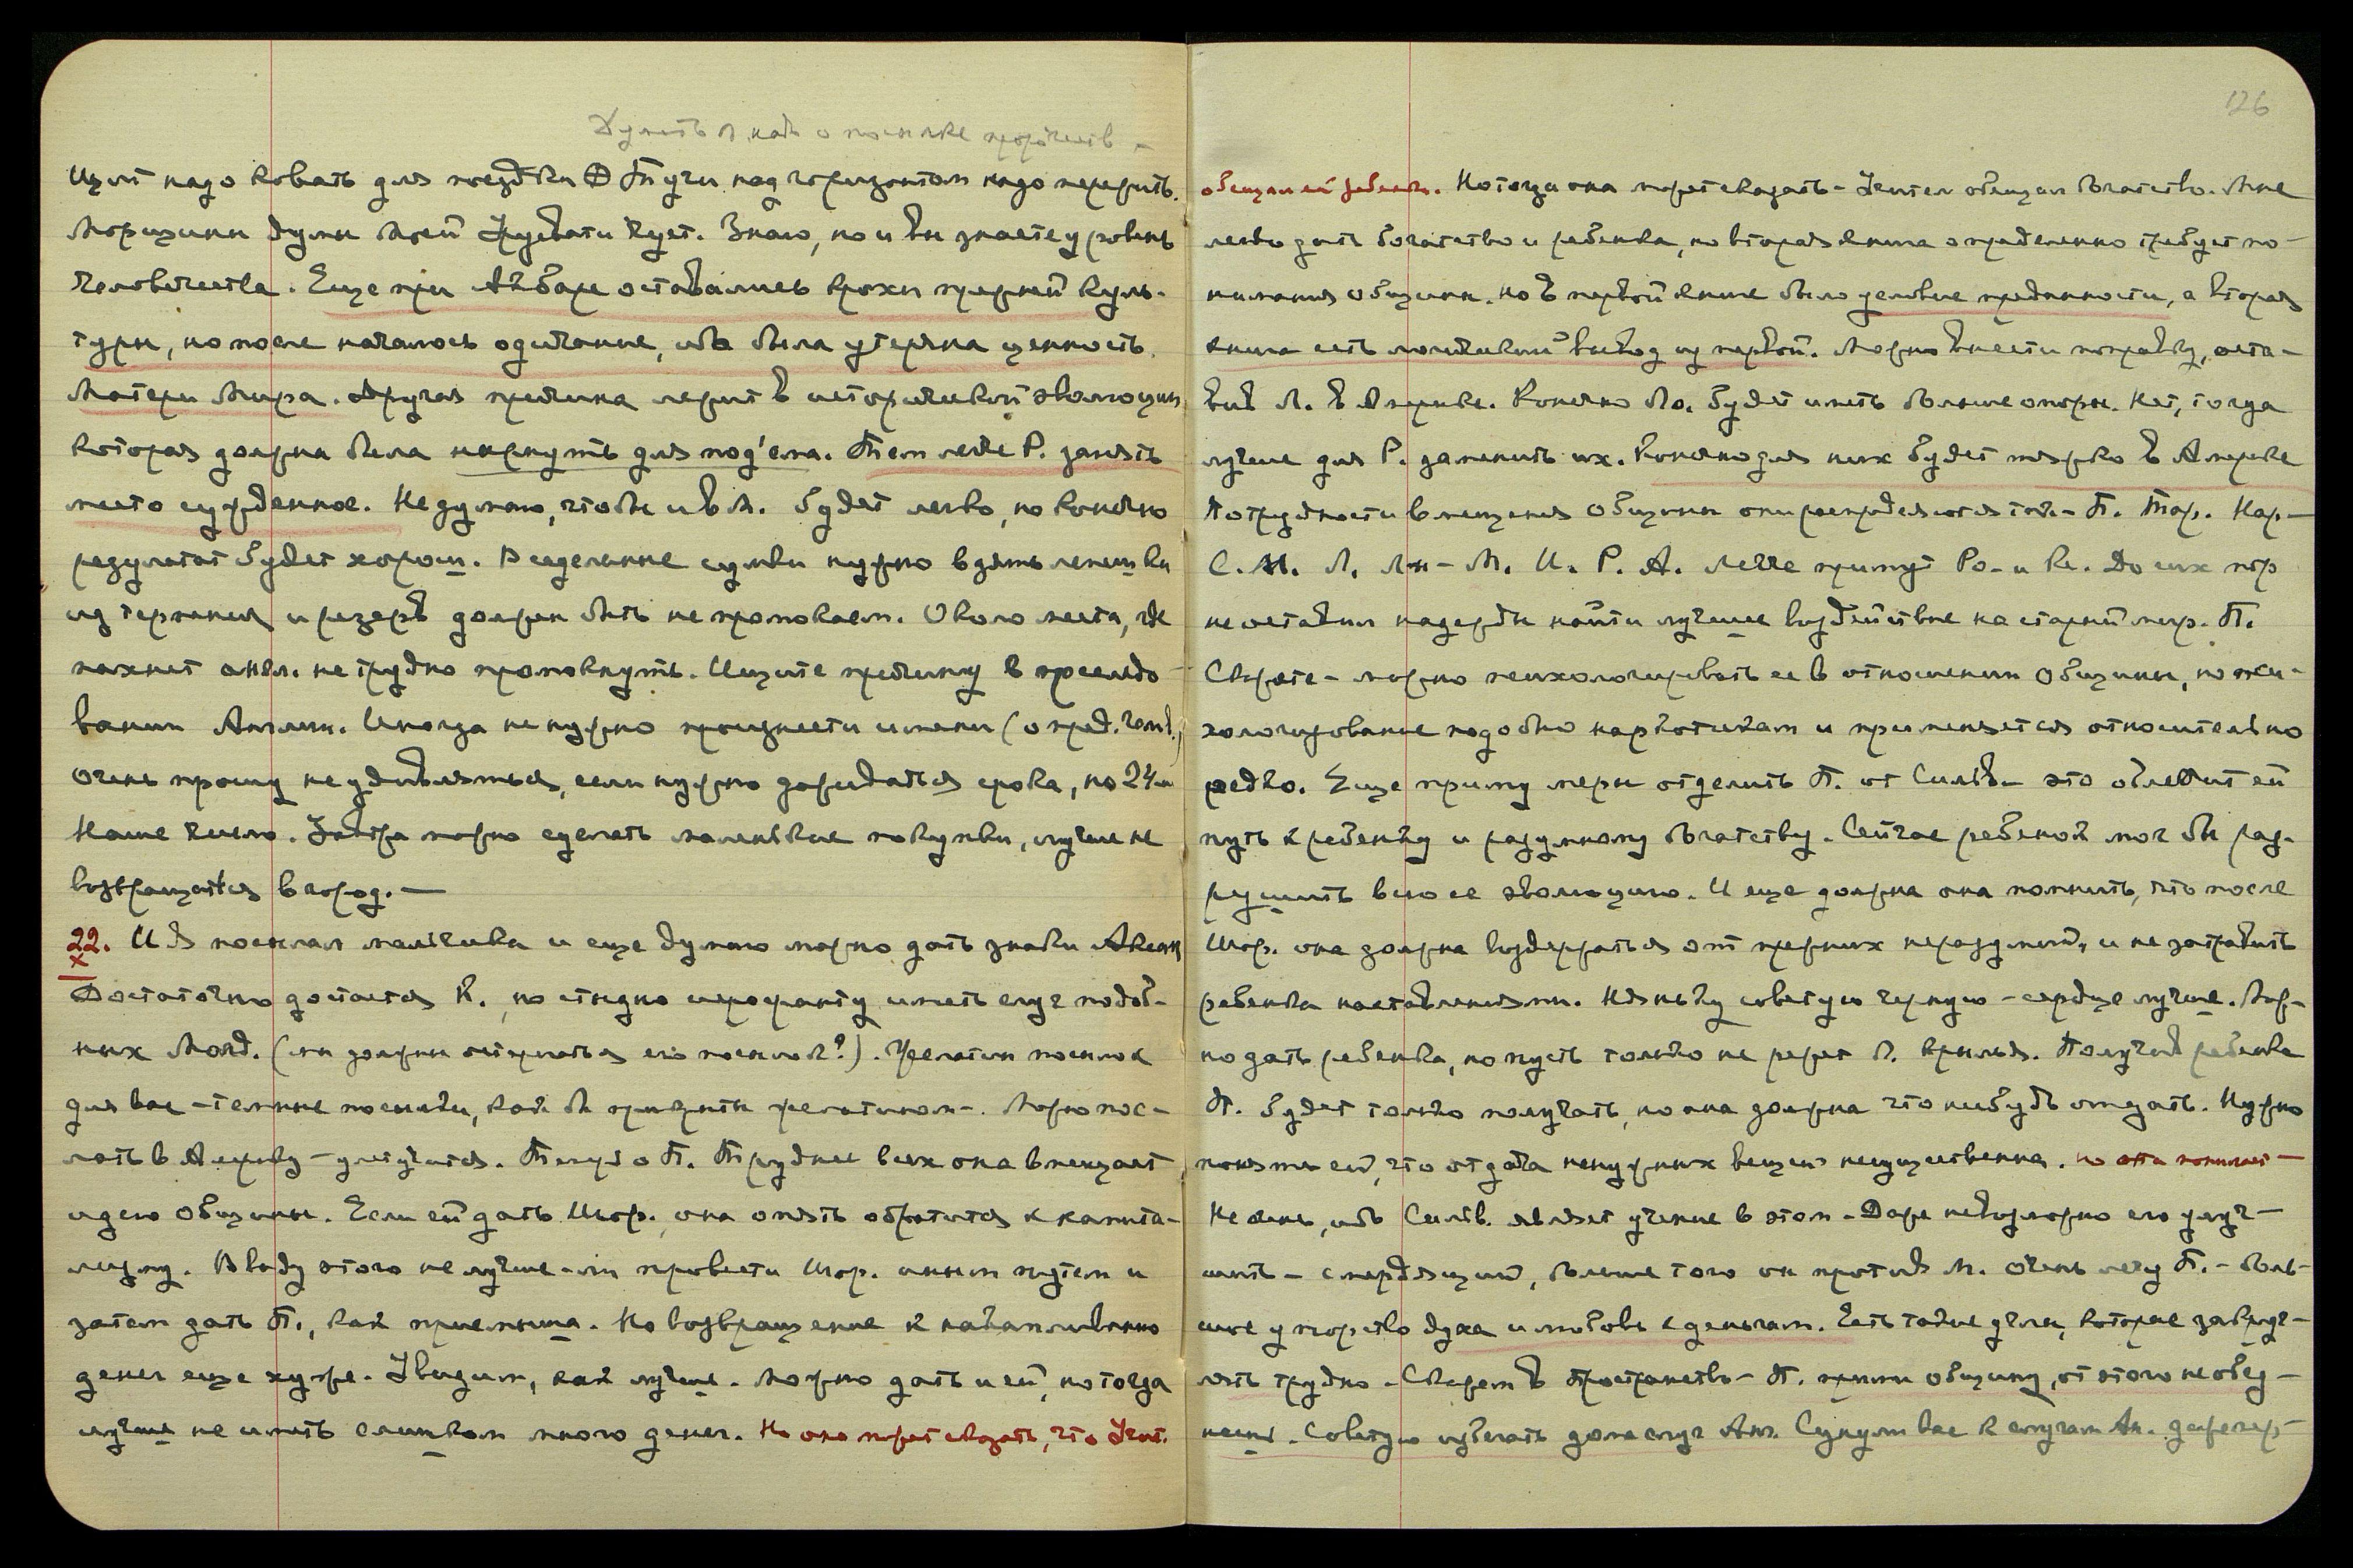 Думать надо о посылке пророчеств –
Щит надо ковать для поездки. Тучи над горизонтом надо пережить.
Морщины думы моей Урусвати чует. Знаю, но и вы знаете уровень
человечества. Еще при Акбаре оставались крохи прежней куль-
туры, но после началось одичание, ибо была утеряна ценность
Матери Мира. Другая причина лежит в исторической эволюции
которая должна была нырнуть для под'ема. Тем легче Р. занять
место сужденное. Не думаю, чтобы и в М. будет легко, но конечно
результат будет хорош. В седельные сумки нужно взять лепешки
из терпения и резерв должен быть не промокаем. Около места, где
пахнет англ. не трудно промокнуть. Ищите причину в преследо-
вании Англии. Иногда не нужно произнести имени
Очень прошу не удивляться, если нужно дожидаться срока, но 24-ое
Наше число. Завтра можно сделать маленькие покупки, лучше не
возвращаться в город. —
22. И Я посылал мальчика и еще думаю можно дать знаки
X
Достаточно достается К., но стыдно иерофанту иметь слуг подоб-
ных Молд. (мы должны остерегаться его посылок?). Желатин посылок
для вас – темные посылки, как бы пронзить желатином –. Можно пос-
лать в Америку – улетучится. Текут о П. Труднее всех она вмещает
идею Общины. Если ей дать Шор., она опять обратится к капита-
лизму. Ввиду этого не лучше-ли провести Шор. иным путем и
затем дать П., как приемыша. Но возвращение к накапливанию
денег еще хуже. Увидим, как лучше. Можно дать и ей, но тогда
лучше не иметь слишком много денег. Но она может сказать, что Учит.
126
обещал ей ребенка. Но тогда она может сказать – Учител обещал богатство. Мне
легко дать богатство и ребенка, но вторая книга определенно требует по-
нимания общины. Но в первой книге было условие преданности, а вторая
книга есть логический вывод из первой. Можно внести поправку, оста-
вив Л. в Америке. Конечно Ло. будет иметь больше опоры. Нет, тогда
лучше для Р. заменить их. Конечно для них будет тяжко в Америке
По трудности вмещения Общины они распределяются так – П. Тар. Нар –
С. М. Л. Лин – М. И. Р. А. Легче примут Ро. и Ке. До сих пор
не оставил надежды найти лучшее воздействие на старый мир. П.
Скажете – можно психологировать ее в отношении Общины, но пси-
хологизирование подобно наркотикам и применяется относительно
редко. Еще приму меры отделить П. от Сильв. – это облегчит ей
путь к ребенку и разумному богатству. Сейчас ребенок мог бы раз-
рушить всю ее эволюцию. И еще должна она помнить, что после
Шор. она должна воздержаться от прежних неразумий, и не затравить
ребенка наставлениями. Няньку советую черную – сердце лучше. Мож-
но дать ребенка, но пусть только не режет Л. крылья. Получив ребенка
П. будет только получать, но она должна что нибудь отдать. Нужно
понять ей, что отдача ненужных вещей несущественна. но она понимает –
Не ясно, ибо Сильв. являет учение в этом – Даже невозможно его улуч-
шить – смердящий, больше того он против М. Очень лечу П. – боль-
шое упорство духа и любовь к деньгам. Есть такие углы, которые закруг-
лять трудно – Скажем в пространство – П. прими общину, от этого не обед-
неешь. Советую избегать дома слуг Анг. Сунули вас к слугам Ан.